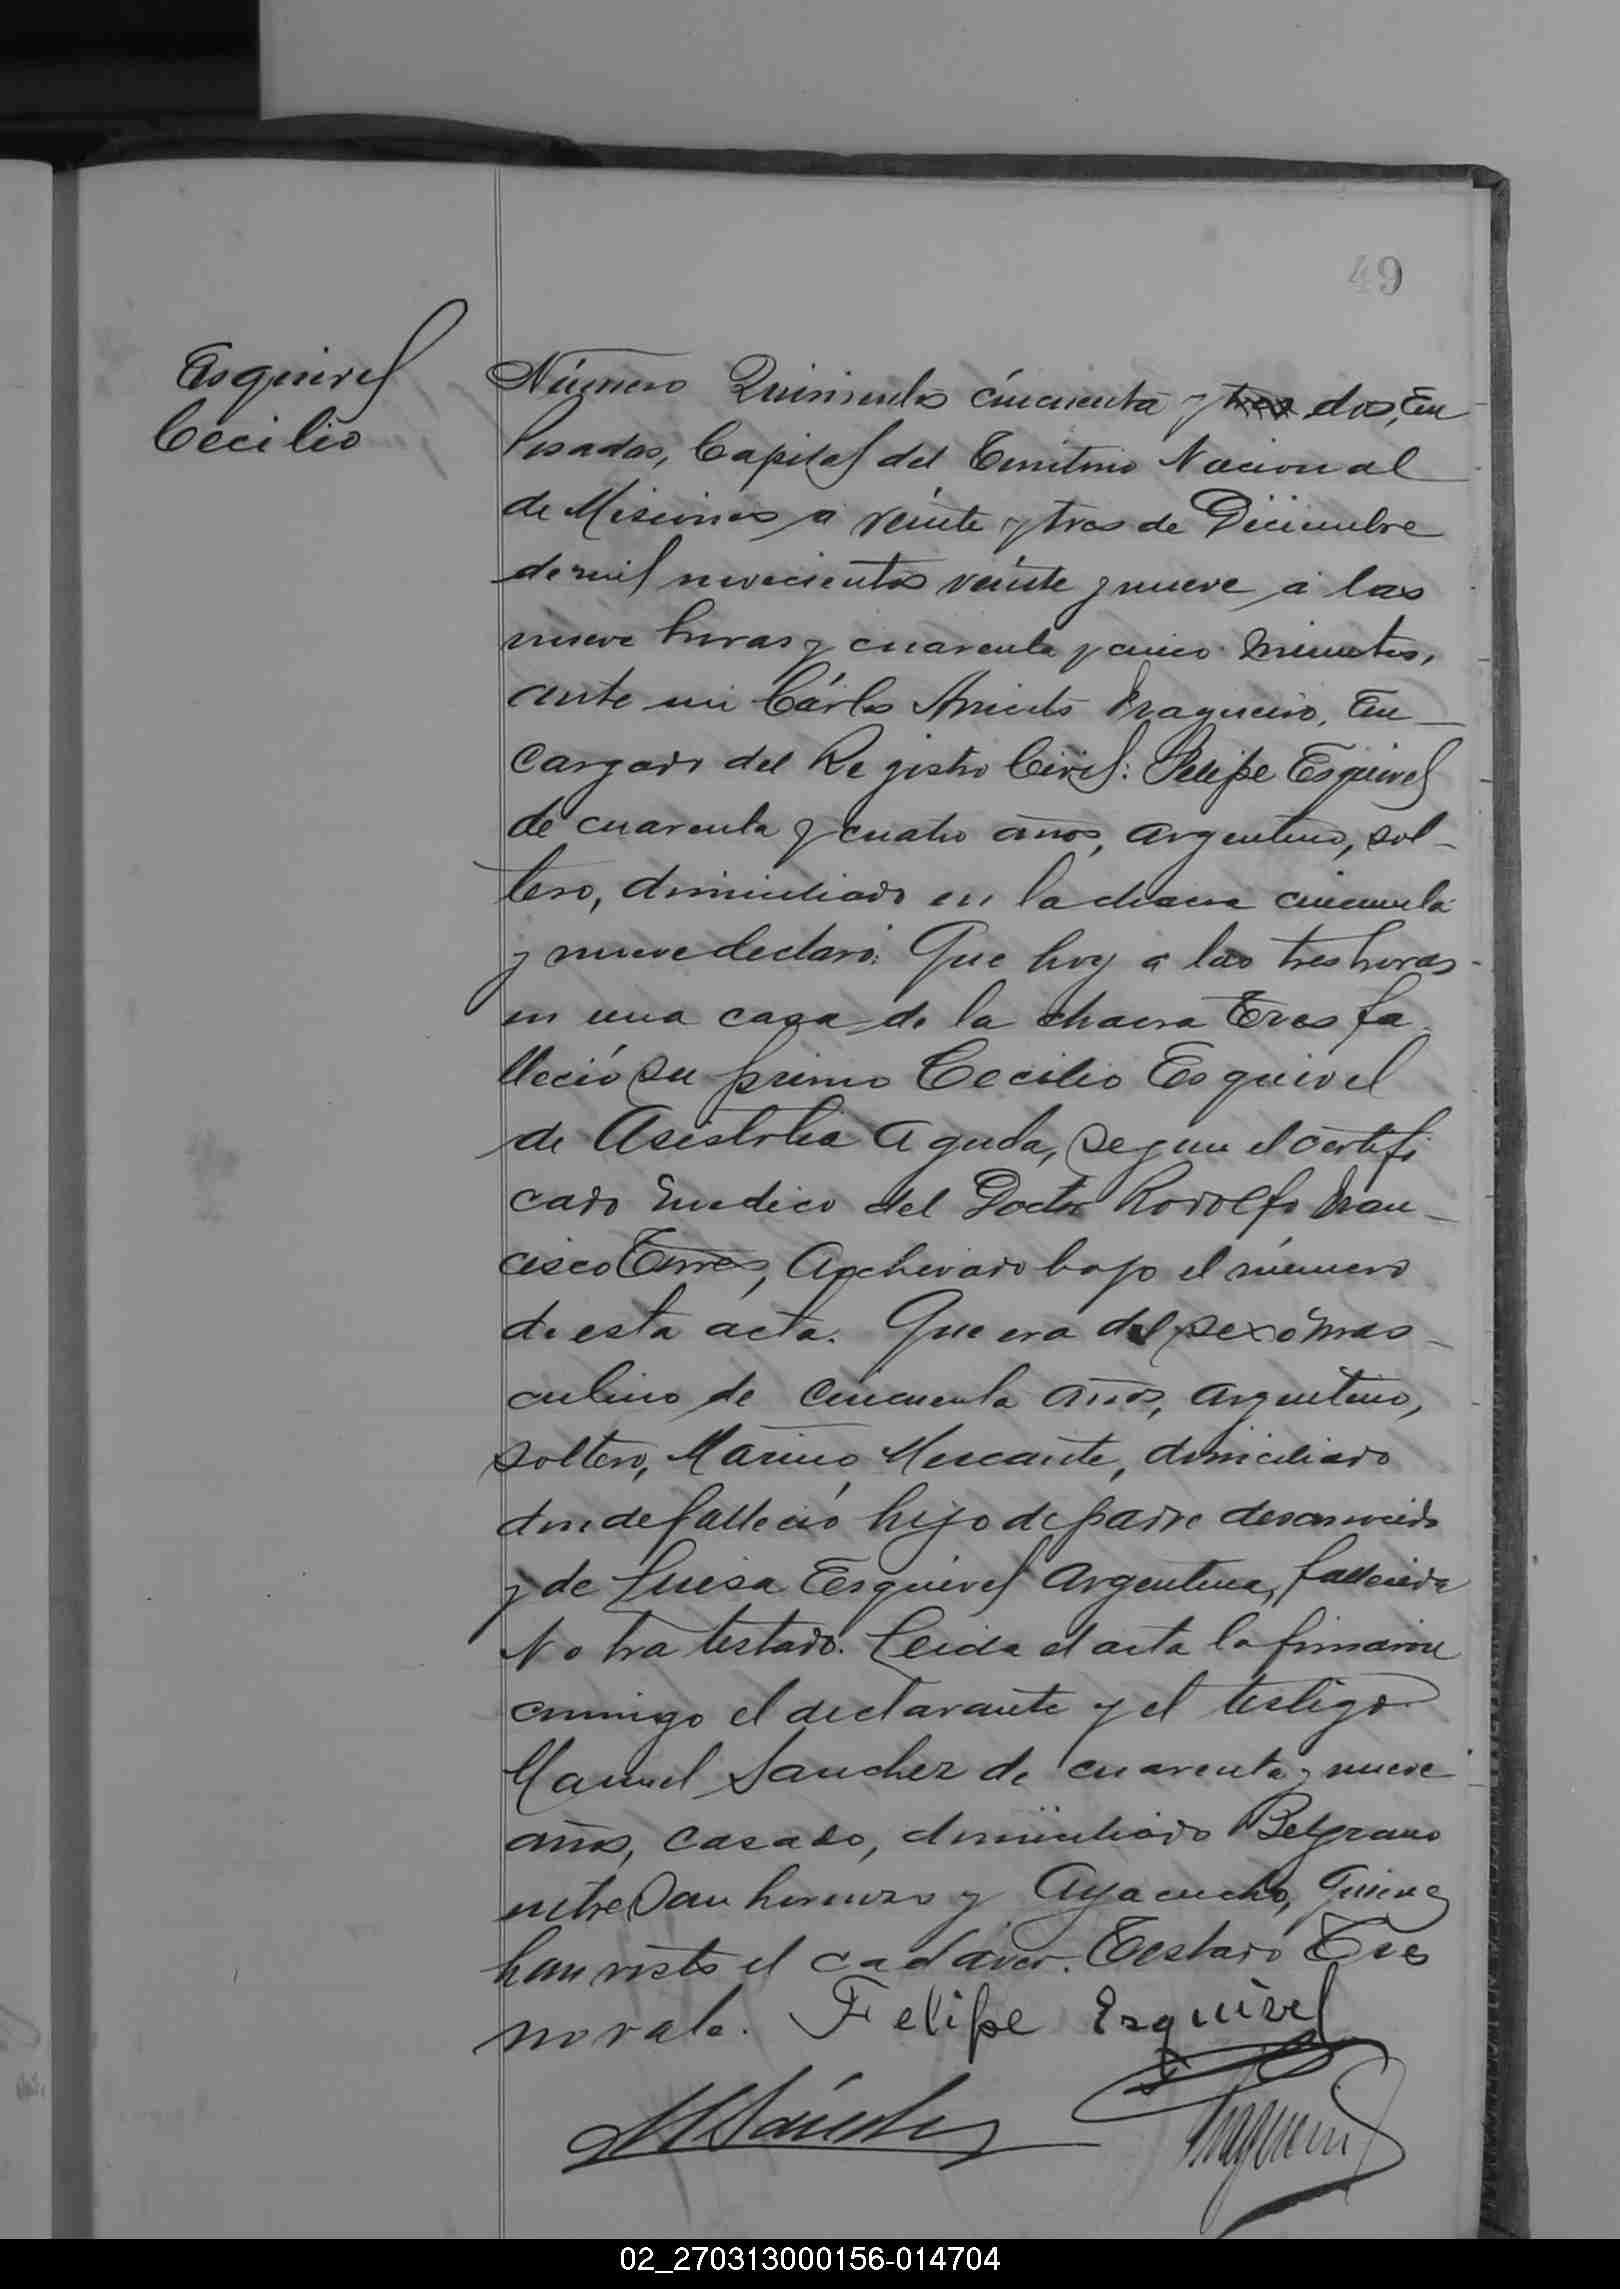 49
Esquivel
Cecilio
Número Quinientos cincuenta y tres dos, En
Posadas, Capital del Territorio Nacional
de Misiones a veinte y tres de Diciembre
de mil novecientos veinte y nueve a las
nueve horas y cuarenta y cinco minutos,
ante mi Cárlos Aniceto Fragueiro, En-
cargado del Registro Civil: Felipe Esquivel
de cuarenta y cuatro años, argentino, sol-
tero, domiciliado en la chacra cincuenta
y nueve declaró: Que hoy a las tres horas
en una casa de la chacra Tres fa
lleció su primo Cecilio Esquivel
de Asistolia Aguda, segun el certifi
cado medico del Doctor Rodolfo Fran-
cisco Torres, Archivado bajo el número
de esta acta. Que era del sexo mas-
culino de cincuenta años, argentino,
soltero, Marino Mercante, domiciliado
donde falleció hijo de padre desconocido
y de Luisa Esquivel Argentina, fallecida
No ha testado. Leida el acta la firmaron
conmigo el declarante y el testigo
Manuel Sanchez de cuarenta y nueve
años, casado, domiciliado Belgrano
entre San Lorenzo y Ayacucho, Quienes
han visto el cadáver. Testado Tres
no vale. Felipe Esquivel
M Sánchez
Fragueiro
02_270313000156-014704